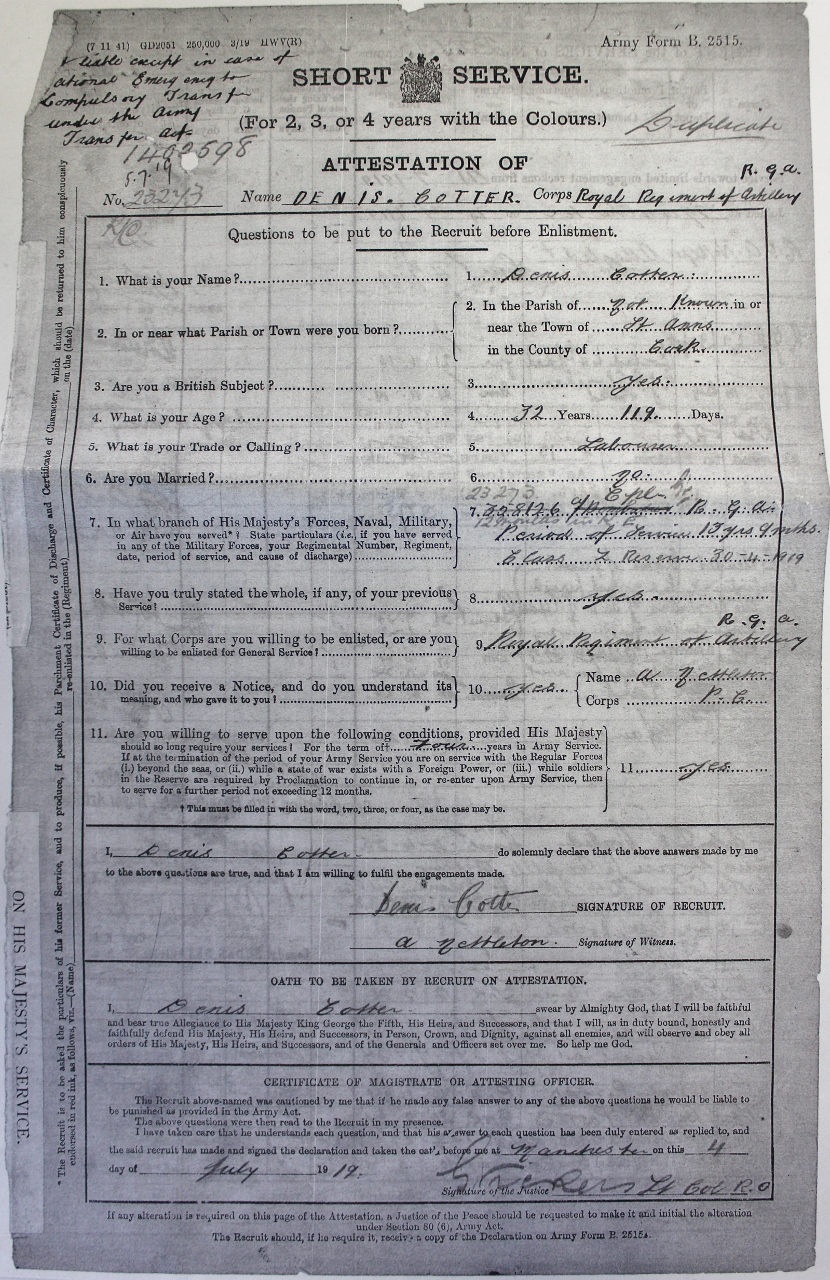 (7 11 41) GD2051 250,000 3/19 HWV(R)
Army Form B. 2515.
liable except in case of
ational Emergency to
Compulsory Transfer
under the Army
Transfer Act
SHORT SERVICE.
(For 2, 3, or 4 years with the Colours.)
Duplicate
1402698
5.7.19
ATTESTATION OF
R. G. A.
No. 23273 Name DENIS. COTTER. Corps Royal Regiment of Artillery
Questions to be put to the Recruit before Enlistment.
1. What is your Name?
1. Denis Cotter.
2. In or near what Parish or Town were you born?
2. In the Parish of Not Known in or
near the Town of St Anns
in the County of Cork.
3. Are you a British Subject?
3. Yes.
4. What is your Age?
4. 32 Years 119 Days.
5. What is your Trade or Calling?
5. Labourer
6. Are you Married?
6. No.
23273 Cpl.
7. In what branch of His Majesty's Forces, Naval, Military,
or Air have you served*? State particulars (i.e., if you have served
in any of the Military Forces, your Regimental Number, Regiment,
date, period of service, and cause of discharge)
7. 358126 R. G. A.
Period of Service 13 yrs 9 mths.
Class Z Reserve 30-4-1919
8. Have you truly stated the whole, if any, of your previous
Service?
8. Yes.
R. G. A.
9. For what Corps are you willing to be enlisted, or are you
willing to be enlisted for General Service?
9. Royal Regiment of Artillery
10. Did you receive a Notice, and do you understand its
meaning, and who gave it to you?
10. Yes
Name A Nettleton
Corps R. E.
11. Are you willing to serve upon the following conditions, provided His Majesty
should so long require your services? For the term of† Four years in Army Service.
If at the termination of the period of your Army Service you are on service with the Regular Forces
(i.) beyond the seas, or (ii.) while a state of war exists with a Foreign Power, or (iii.) while soldiers
in the Reserve are required by Proclamation to continue in, or re-enter upon Army Service, then
to serve for a further period not exceeding 12 months.
11. Yes
† This must be filled in with the word, two, three, or four, as the case may be.
I, Denis Cotter. do solemnly declare that the above answers made by me
to the above questions are true, and that I am willing to fulfil the engagements made.
Denis Cotter SIGNATURE OF RECRUIT.
A Nettleton. Signature of Witness.
OATH TO BE TAKEN BY RECRUIT ON ATTESTATION.
I, Denis Cotter swear by Almighty God, that I will be faithful
and bear true Allegiance to His Majesty King George the Fifth, His Heirs, and Successors, and that I will, as in duty bound, honestly and
faithfully defend His Majesty, His Heirs, and Successors, in Person, Crown, and Dignity, against all enemies, and will observe and obey all
orders of His Majesty, His Heirs, and Successors, and of the Generals and Officers set over me. So help me God.
CERTIFICATE OF MAGISTRATE OR ATTESTING OFFICER.
The Recruit above-named was cautioned by me that if he made any false answer to any of the above questions he would be liable to
be punished as provided in the Army Act.
The above questions were then read to the Recruit in my presence.
I have taken care that he understands each question, and that his answer to each question has been duly entered as replied to, and
the said recruit has made and signed the declaration and taken the oath before me at Manchester on this 4
day of July 1919.
Signature of the Justice Lt Col R.O
If any alteration is required on this page of the Attestation, a Justice of the Peace should be requested to make it and initial the alteration
under Section 80 (6), Army Act.
The Recruit should, if he require it, receive a copy of the Declaration on Army Form B. 2515A.
* The Recruit is to be asked the particulars of his former Service, and to produce, if possible, his Parchment Certificate of Discharge and Certificate of Character, which should be returned to him conspicuously
endorsed in red ink, as follows, viz.—(Name) re-enlisted in the (Regiment) on the (date)
ON HIS MAJESTY'S SERVICE.